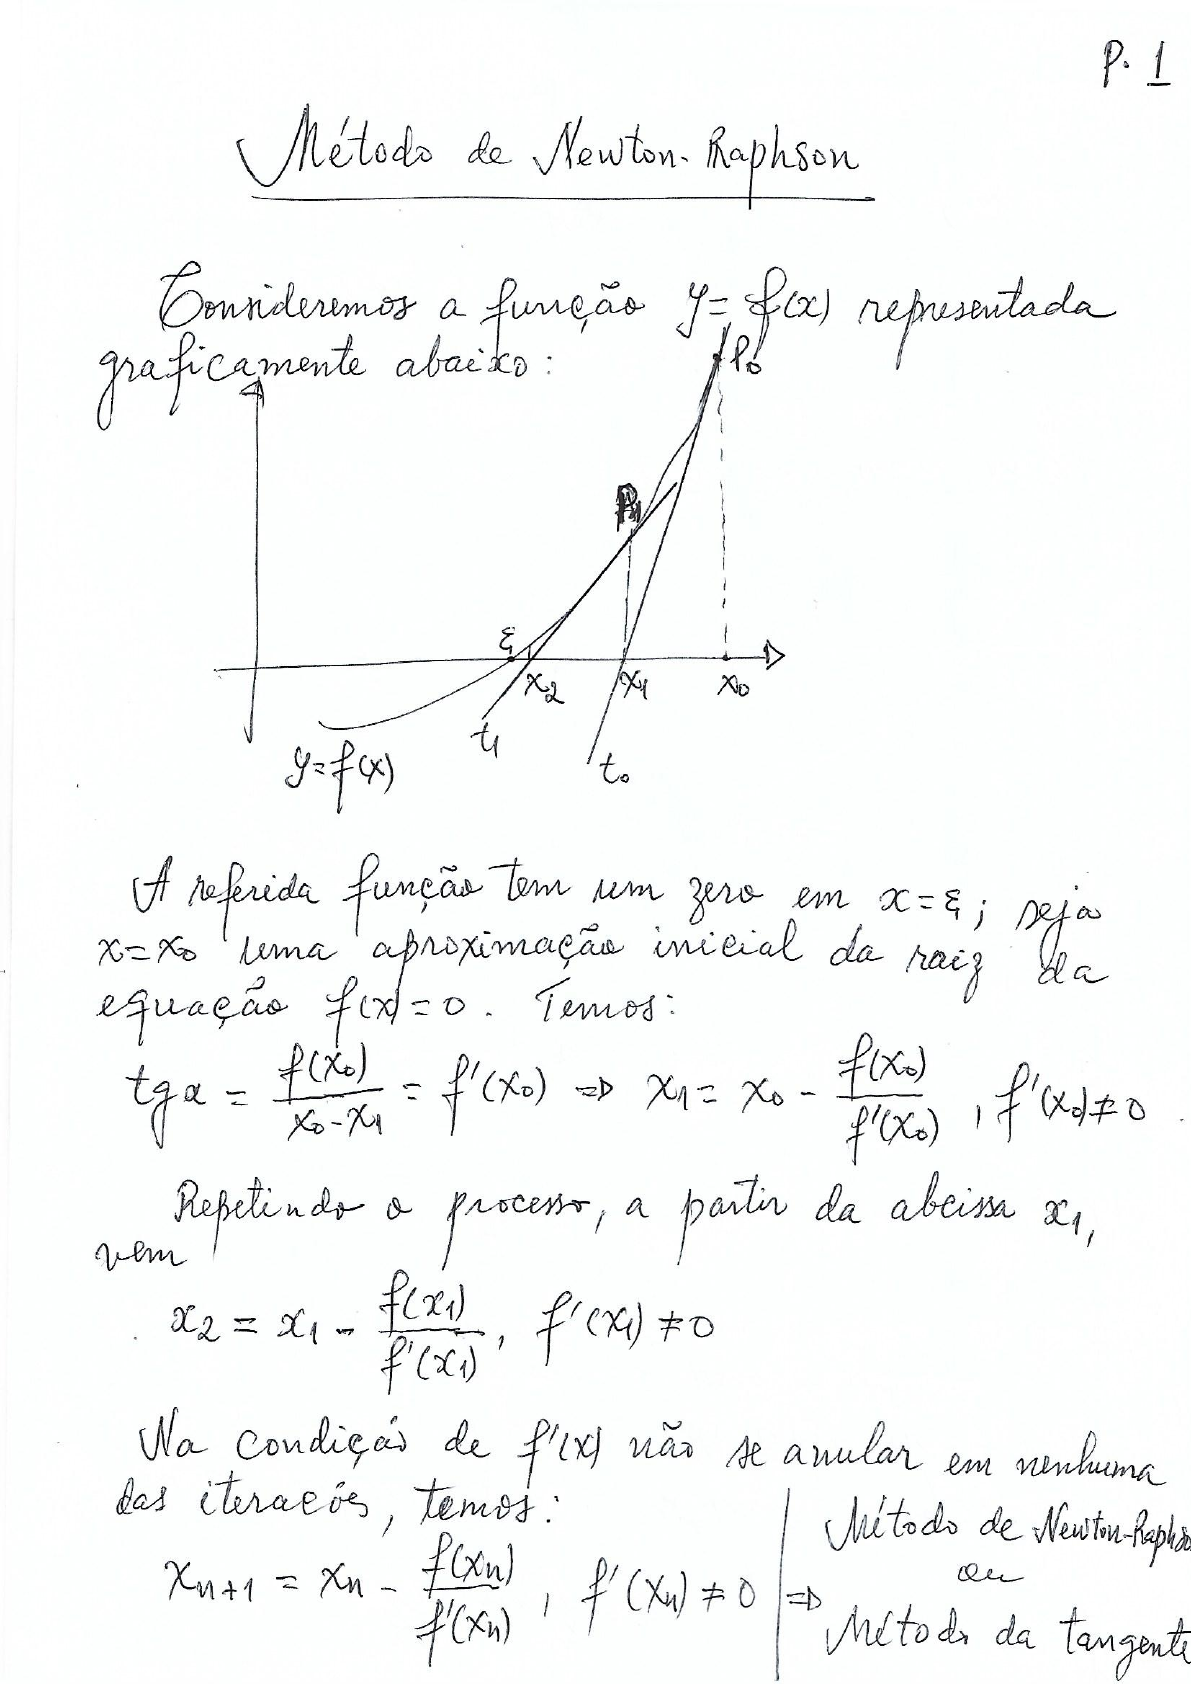 P. 1
Método de Newton-Raphson
Consideremos a função y = f(x) representada
graficamente abaixo:
P₀
P₁
ξ
x₂ x₁ x₀
t₁
t₀
y=f(x)
A referida função tem um zero em x = ξ; seja
x = x₀ uma aproximação inicial da raiz da
equação f(x) = 0. Temos:
tg α = f(x₀)/(x₀-x₁) = f'(x₀) ⇒ x₁ = x₀ - f(x₀)/f'(x₀), f'(x₀) ≠ 0
Repetindo o processo, a partir da abcissa x₁,
vem
x₂ = x₁ - f(x₁)/f'(x₁), f'(x₁) ≠ 0
Na condição de f'(x) não se anular em nenhuma
das iterações, temos:
xₙ₊₁ = xₙ - f(xₙ)/f'(xₙ), f'(xₙ) ≠ 0 ⇒
Método de Newton-Raphso
ou
Método da tangente